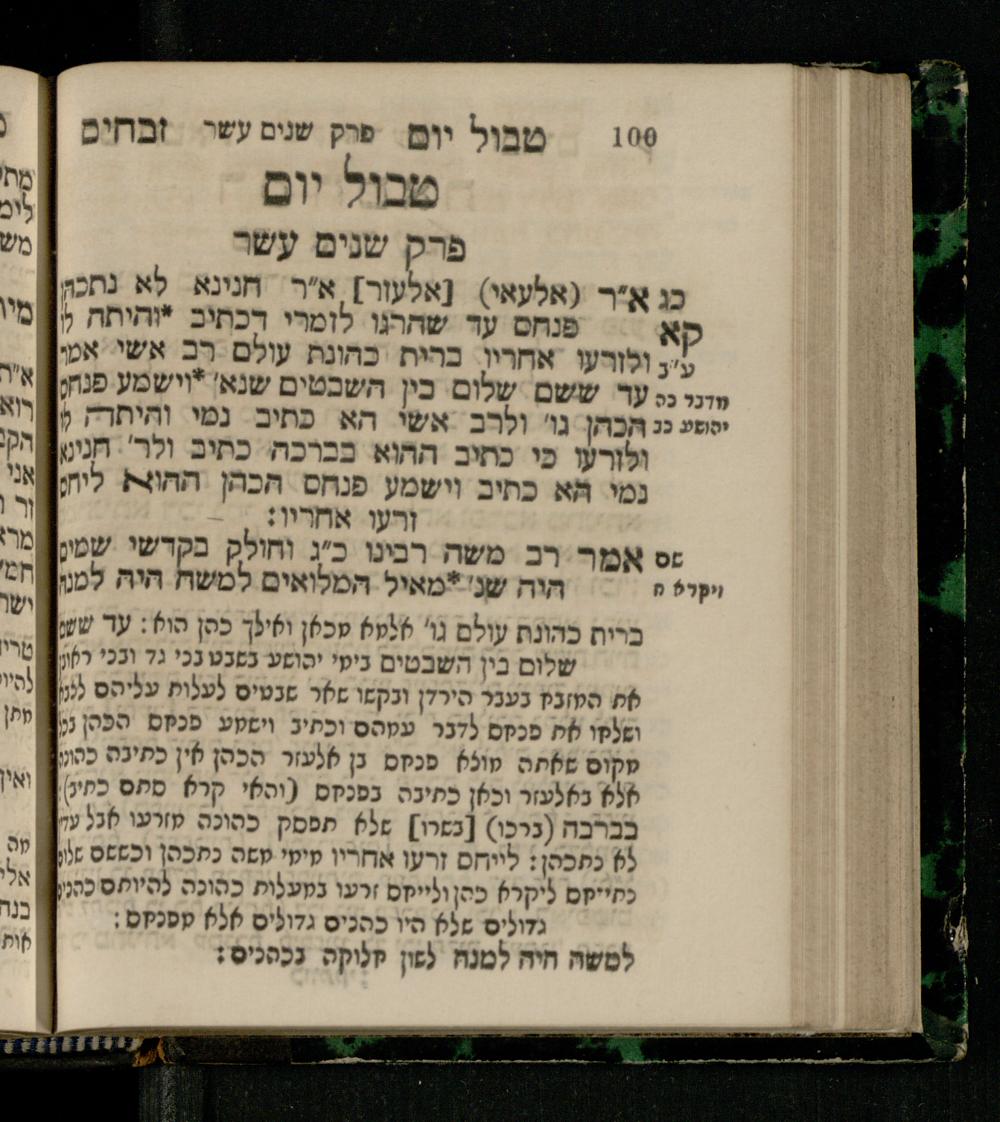 100 טבול יום פרק שנים עשר זבחים
טבול יום
פרק שנים עשר
כג א״ר (אלעאי) [אלעזר] א״ר חנינא לא נתכהן
קא פנחס עד שהרגו לזמרי דכתיב *והיתה לו
ע״ב ולזרעו אחריו ברית כהונת עולם רב אשי אמר
מדבר כה עד ששם שלום בין השבטים שנא׳ *וישמע פנחס
יהושע כב הכהן גו׳ ולרב אשי הא כתיב נמי והיתה לו
ולזרעו כי כתיב ההוא בברכה כתיב ולר׳ חנינא
נמי הא כתיב וישמע פנחס הכהן ההוא ליחס
זרעו אחריו:
שם אמר רב משה רבינו כ״ג וחולק בקדשי שמים
ויקרא ח היה שנ׳ *מאיל המלואים למשה היה למנה
ברית כהונת עולם גו׳ אלמא מכאן ואילך כהן הוא: עד ששם
שלום בין השבטים בימי יהושע בשבט בני גד ובני ראובן
את המזבח בעבר הירדן ובקשו שאר שבטים לעלות עליהם לצבא
ושלחו את פנחס לדבר עמהם וכתיב וישמע פנחס הכהן בכל
מקום שאתה מוצא פנחס בן אלעזר הכהן אין כתיבה כהונה
אלא באלעזר וכאן כתיבה בפנחס (והאי קרא סתם כתיב):
בברכה (ברכו) [בשרו] שלא תפסק כהונה מזרעו אבל עדיין
לא נתכהן: לייחס זרעו אחריו מימי משה נתכהן וכששם שלום
נתייחס ליקרא כהן ולייחס זרעו במעלות כהונה להיותם כהנים
גדולים שלא היו כהנים גדולים אלא מפנחס:
למשה היה למנה לשון חלוקה בכהנים: